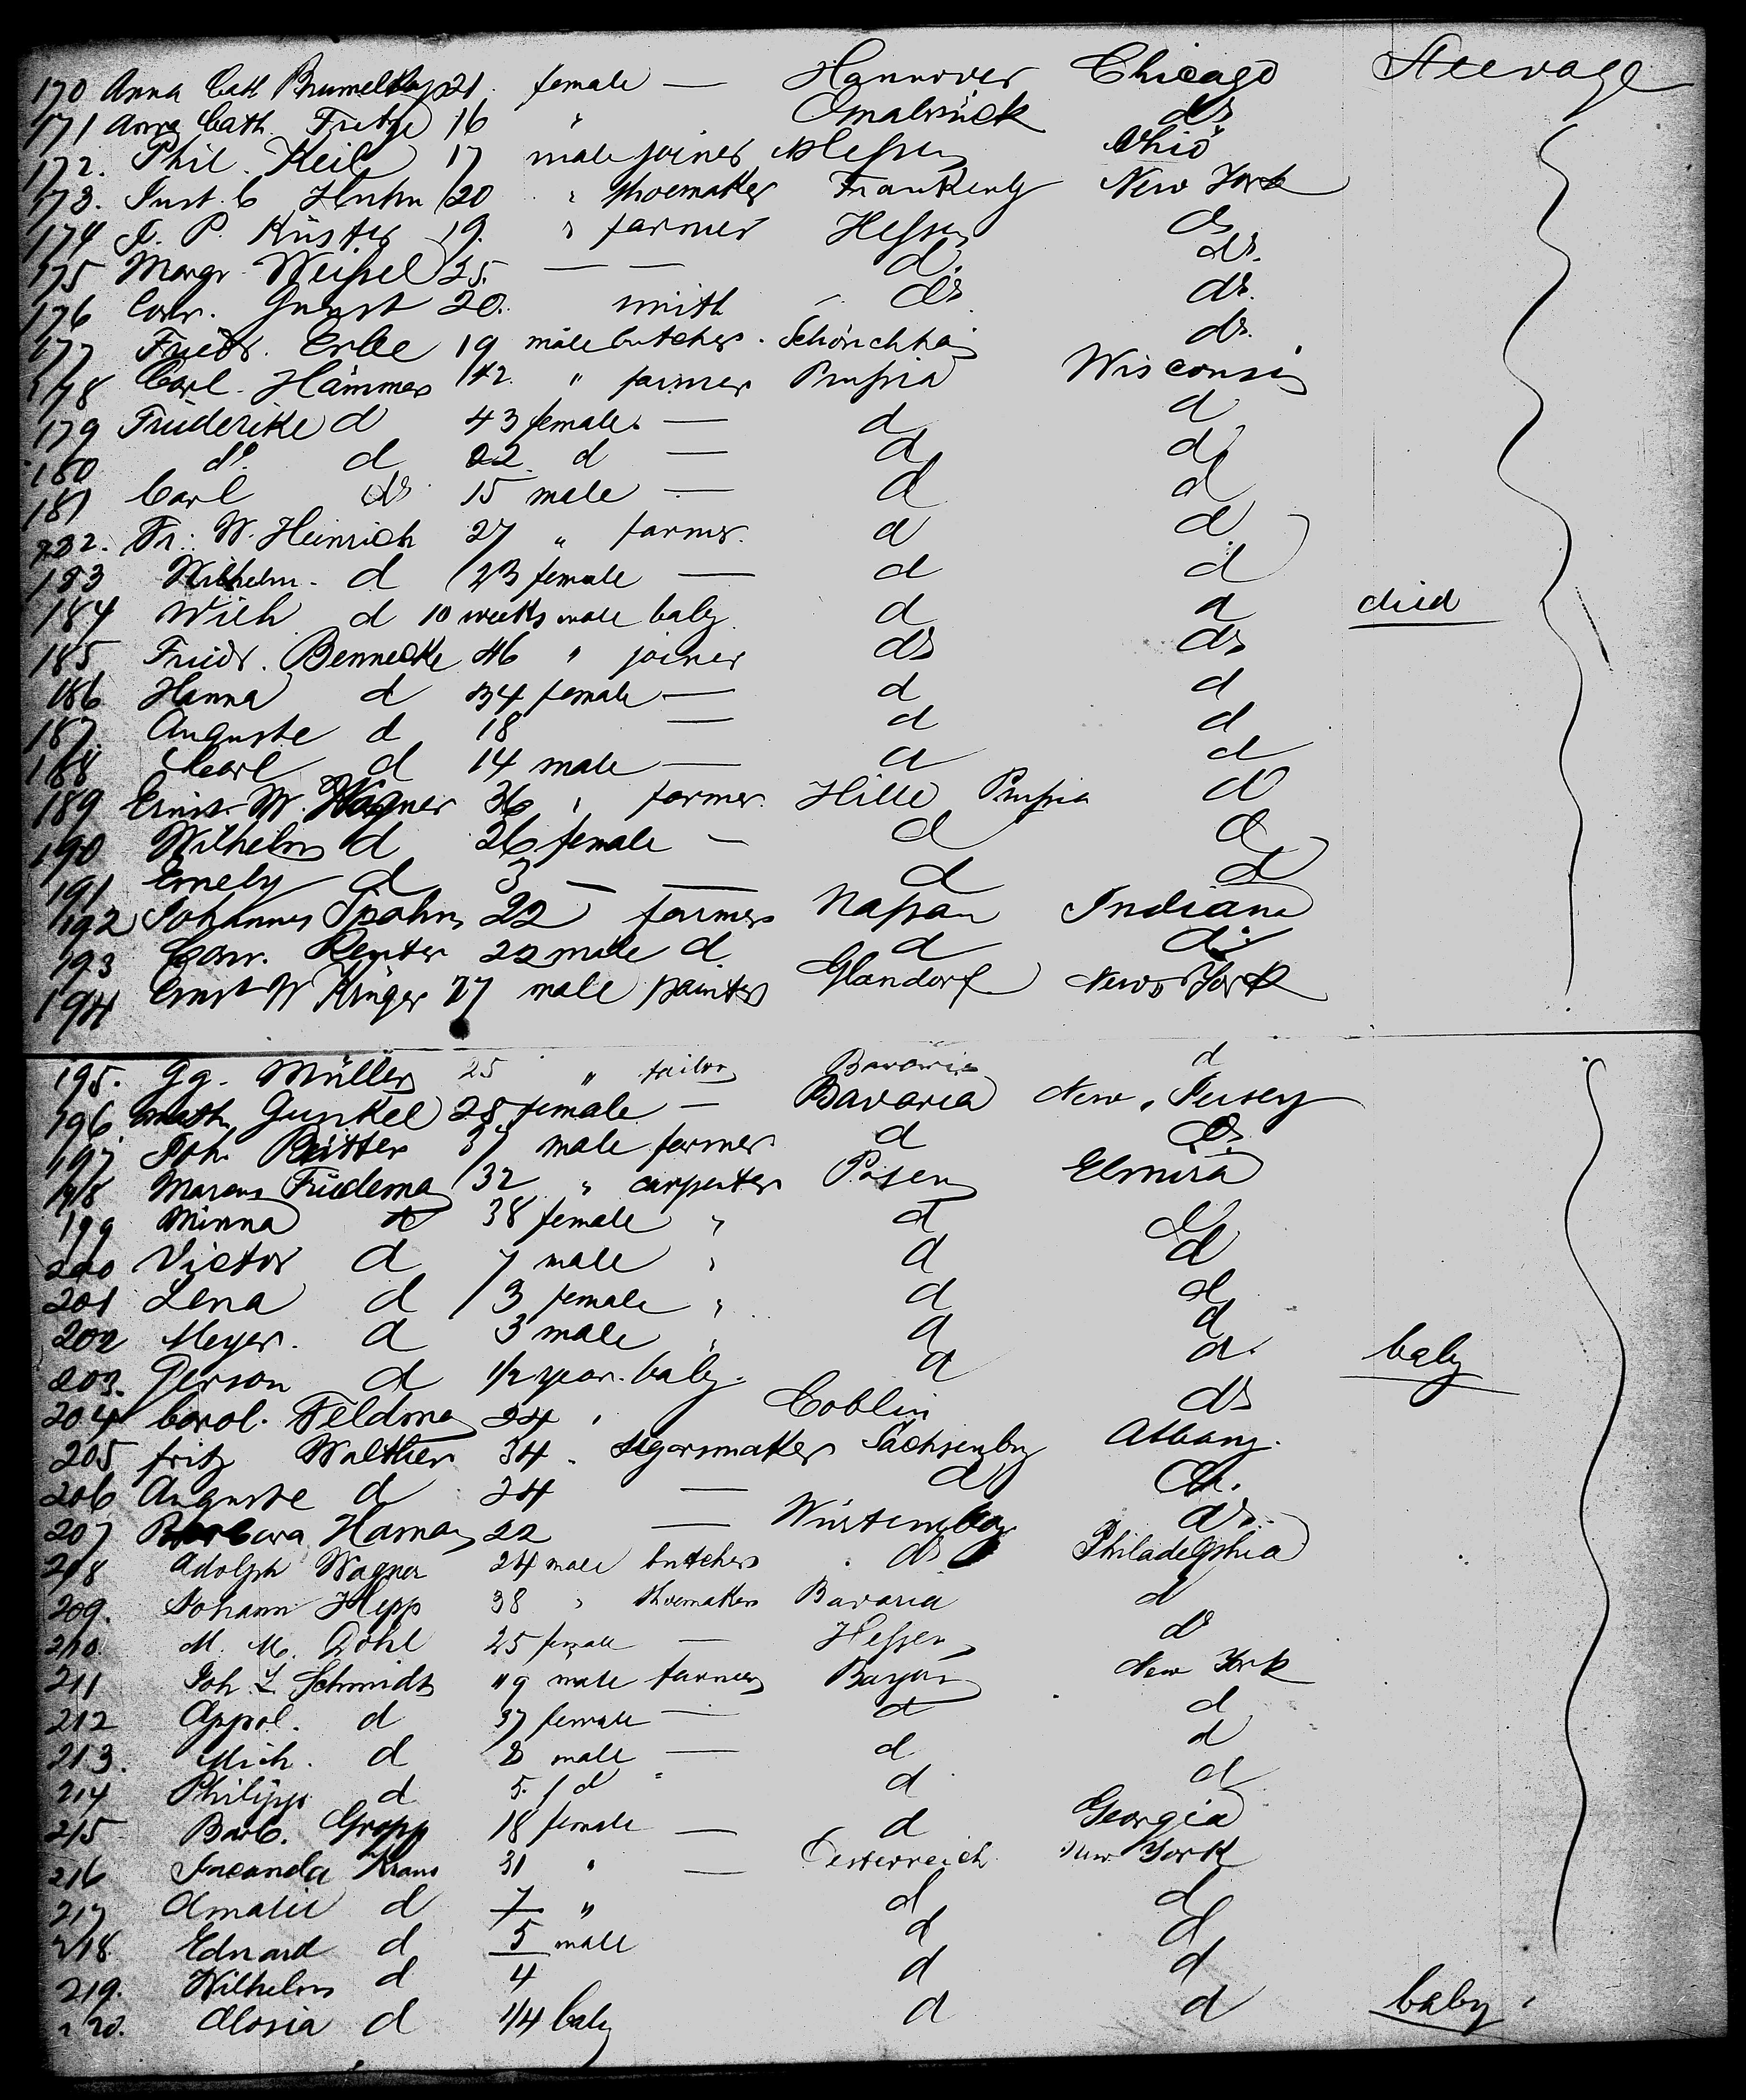 170 Anna Cath Brumelkamp 21. female — Hannover Chicago Steerage
171 Anna Cath. Fritze 16 " Osnabrück do
172. Phil. Keil 17 male joiner Hessen Ohio
173. Just. C Huhn 20 " shoemaker Frankenbg New York
174 J. P. Küster 19. " farmer Hessen do
175 Margr. Weissel 25. — — d. do.
176 Conr. Gunst 20. smith do do.
177 Friedr. Erbe 19 male butcher. do.
178 Carl. Hämmer 42. " farmer Prussia Wisconsin
179 Friederike d 43 female. — d d
180 do d 22. d — d d
181 Carl do 15 male — d d
182. Fr. W. Heinrich 27 " farmer. d d
183 Wilhelm. d 23 female — d d
184 Wilh d 10 weeks male baby. d d died
185 Friedr. Bennecke 46 " joiner do do
186 Hanna d 34 female — d d
187. Auguste d 18 — d d
188 Carl d 14 male — d d
189 Ernst W. Wagner 36 " farmer. Hille Prussia d
190 Wilhelm d 26 female — d d
191 Emely d 3 — — d d
192 Johannes Spahn 22 farmer Nassau Indiana
193 Conr. Reuter 22 male d. d do
194 Ernst W Krüger 27 male painter Glandorf New York
195. Gg. Müller 25 " tailor Bavaria d
196. Gunkel 28 female — Bavaria New Jersey
197 Joh. Ritter 37 male farmer d do
198 Marcus Friedeman 32 " carpenter Posen Elmira
199 Minna d 38 female " d d
200 Victor d 7 male " d d
201 Lena d 3 female " d d
202 Meyer. d 3 male " d d
203. Gerson d 1/2 year. baby. d d. baby
204 Carol. Feldman 24 " Coblin do
205 fritz Walther 34 " segarsmaker Sachsenbg Albany.
206 Auguste d 24 — d do.
207 Barbara Haman 22 — Würtemberg do.
208 Adolph Wagner 24 male butcher do Philadelphia
209. Johann Hepp 38 " shoemaker Bavaria d
210. M. M. Döhl 25 female — Hessen d
211 Joh. L. Schmidt 49 male farmer Bayern New York
212 Appol. d 37 female — d d
213. Mich. d 8 male — d d
214 Philipp d 5. / d " d d
215 Barb. Gropp 18 female — d Georgia
216 Kraus 31 " — Oesterreich New York
217 Amalie d 7 " d d
218. Eduard d 5 male d d
219. Wilhelm d 4 d d
220. Alosia d 1/4 baby d d baby